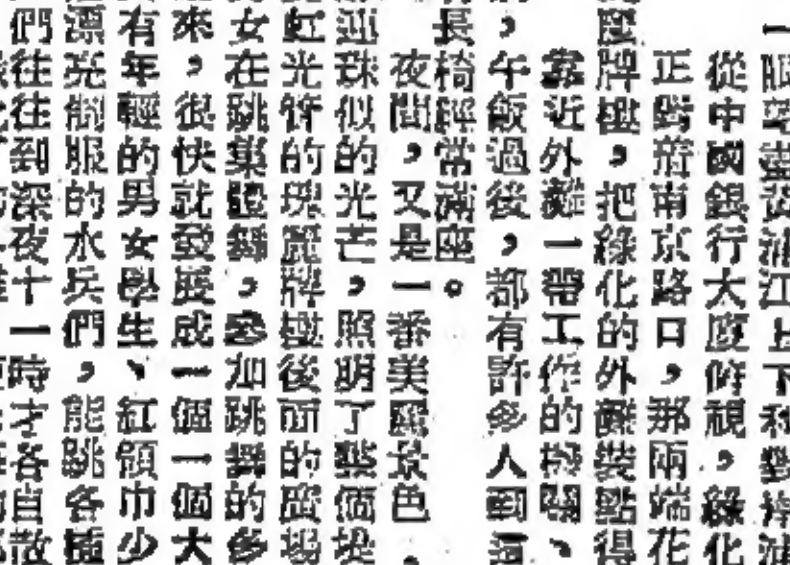 一眼望盡黃浦江上下和對岸浦
從中國銀行大廈俯視，綠化
正對着南京路口，那兩端花
座牌樓，把綠化的外灘裝點得
靠近外灘一帶工作的機關、
，午飯過後，都有許多人到這
長椅經常滿座。
夜間，又是一番美麗景色
連珠似的光芒，照明了整個堤
虹光管的瑰麗牌樓後面的廣場
女在跳集體舞，參加跳舞的多
來，很快就發展成一個一個大
有年輕的男女學生、紅領巾少
漂亮制服的水兵們，能跳各種
們往往到深夜十一時才各自散